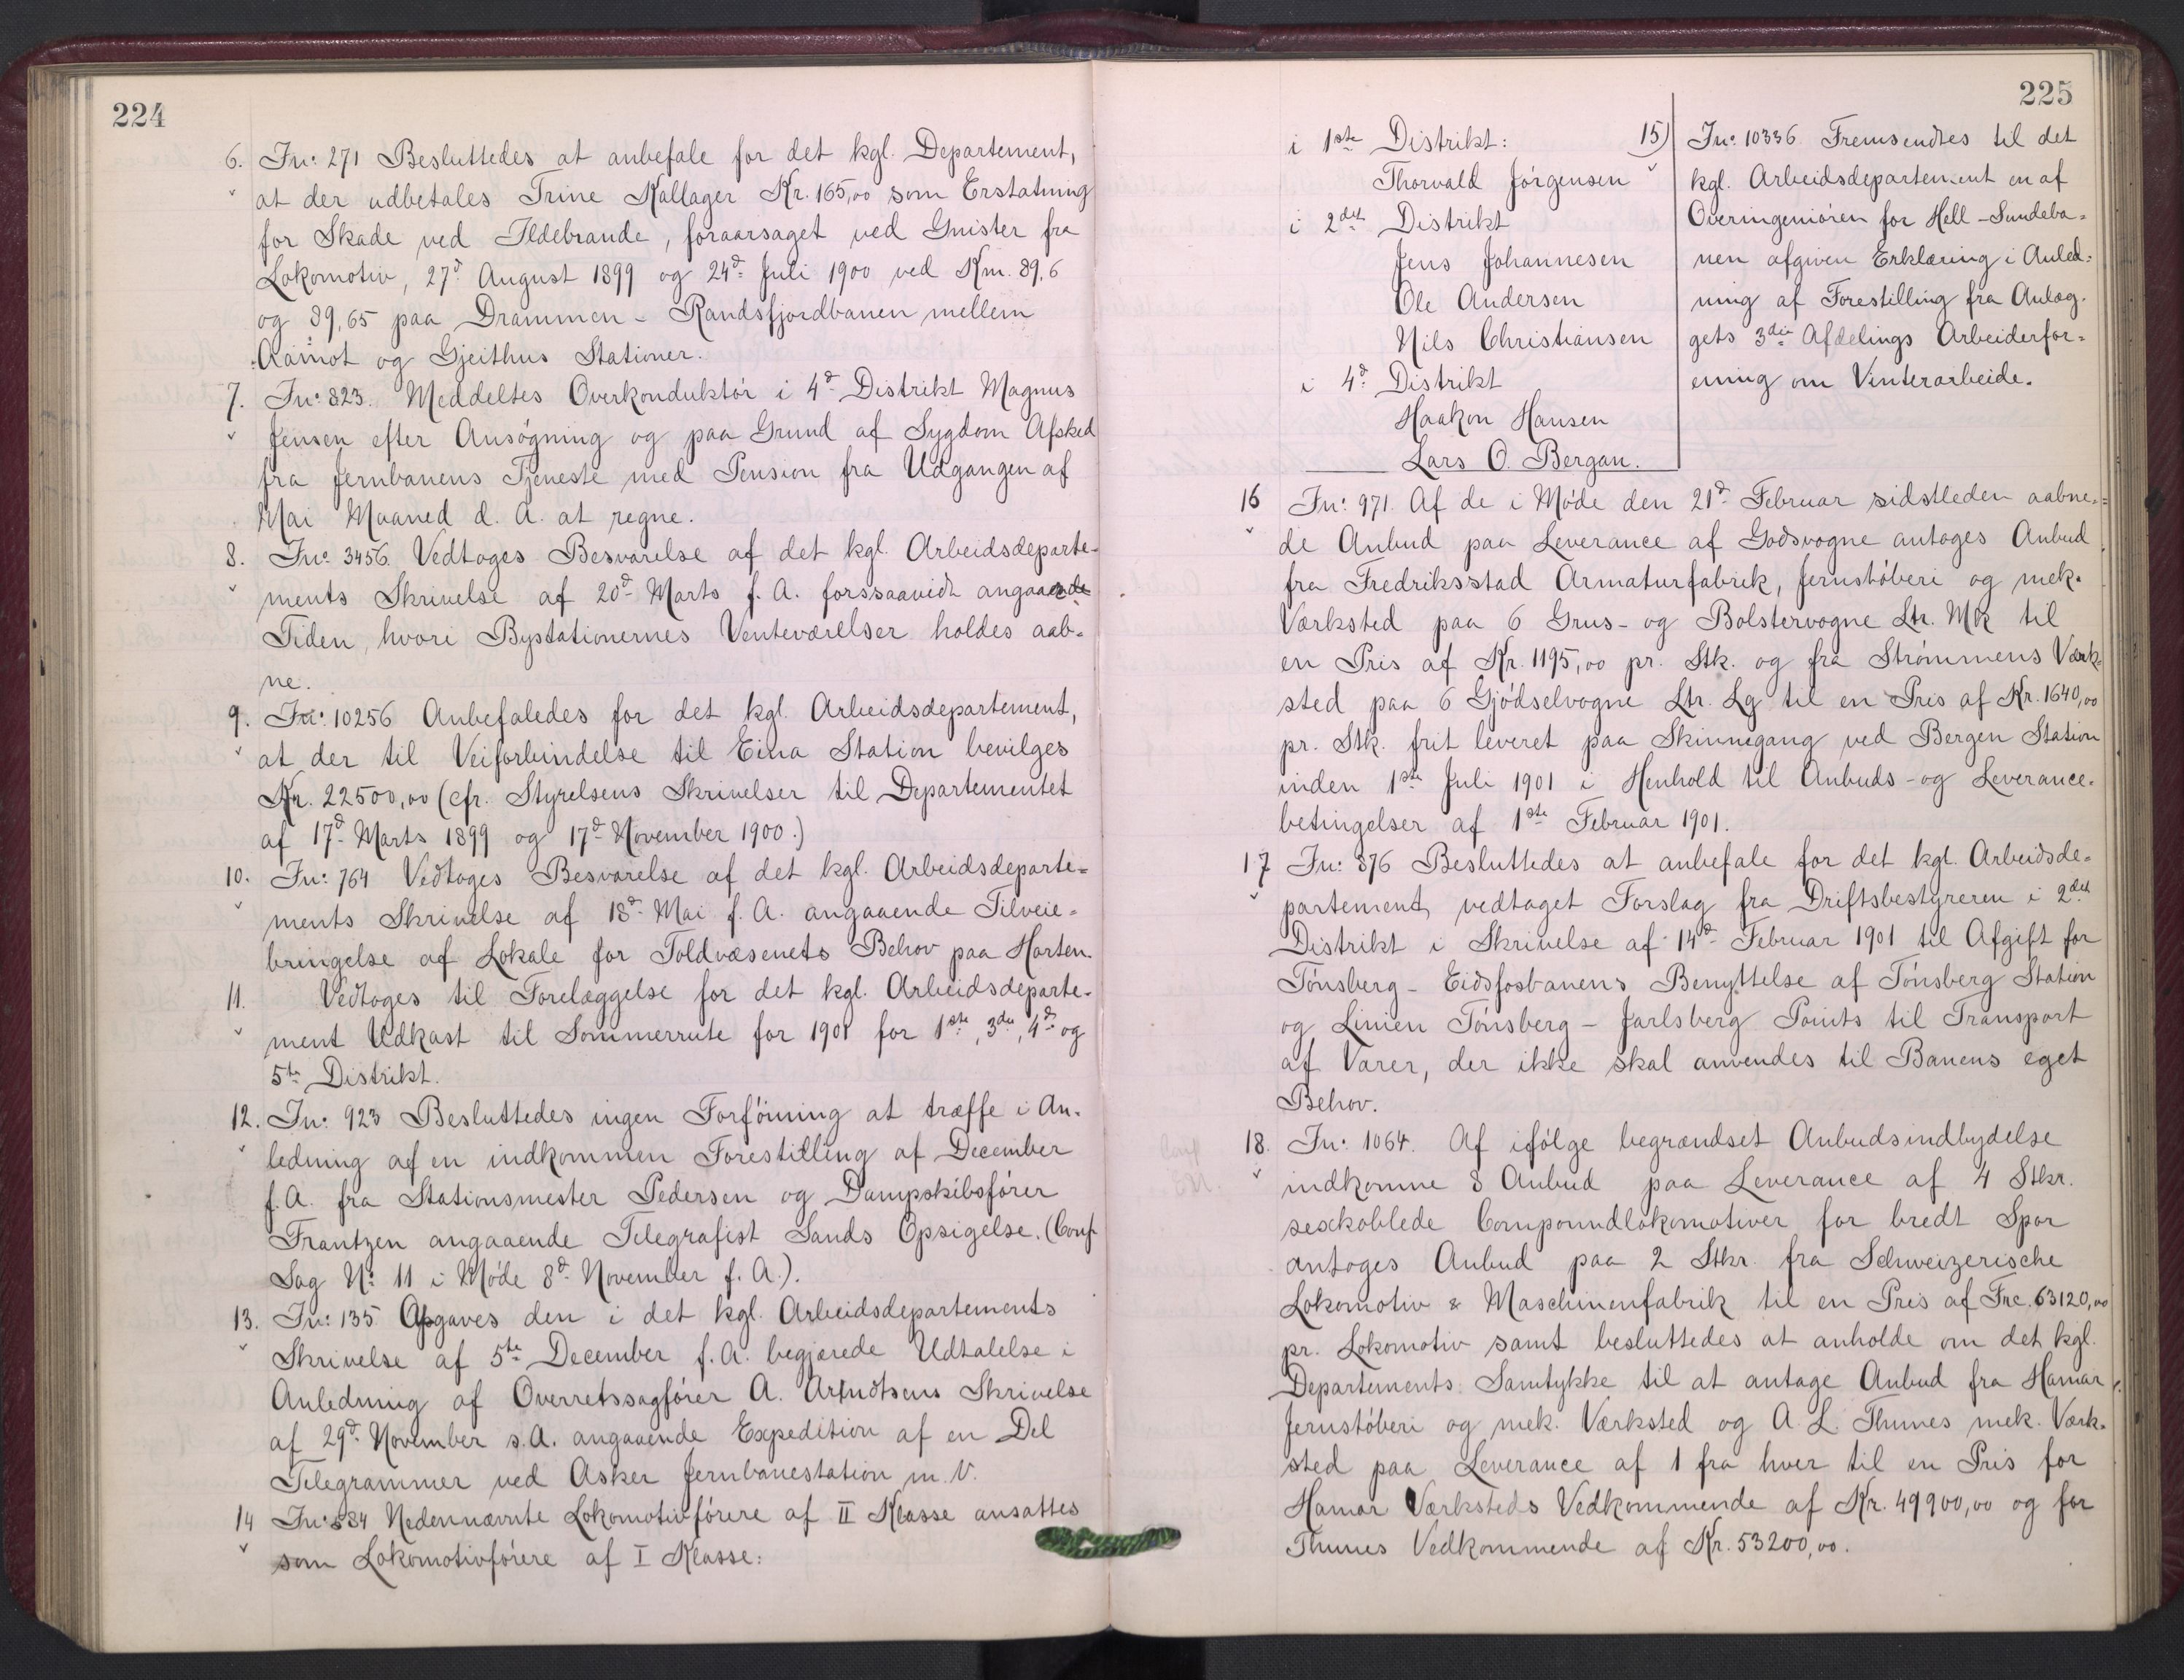 224
6. Jn: 271 Besluttedes at anbefale for det kgl. Departement,
at der udbetales Trine Kallager Kr. 165,00 som Erstatning
for Skade ved Ildebrande, foraarsaget ved Gnister fra
Lokomotiv, 27d August 1899 og 24d Juli 1900 ved Km. 89,6
og 89,65 paa Drammen - Randsfjordbanen mellem
Aamot og Gjeithus Stationer.
7. Jn: 823. Meddeltes Overkonduktör i 4d Distrikt Magnus
Jensen efter Ansögning og paa Grund af Sygdom Afsked
fra Jernbanens Tjeneste med Pension fra Udgangen af
Mai Maaned d. A. at regne.
8. Jn: 3456. Vedtoges Besvarelse af det kgl. Arbeidsdeparte-
ments Skrivelse af 20d Marts f. A. forssaavidt angaaende
Tiden, hvori Bystationernes Venteværelser holdes aab-
ne.
9. Jn: 10256 Anbefaledes for det kgl. Arbeidsdepartement,
at der til Veiforbindelse til Eina Station bevilges
Kr. 22500,00 (cfr. Styrelsens Skrivelser til Departementet
af 17d Marts 1899 og 17d November 1900.)
10. Jn: 764 Vedtoges Besvarelse af det kgl. Arbeidsdeparte=
ments Skrivelse af 18d Mai f. A. angaaende Tilveie=
bringelse af Lokale for Toldvæsenets Behov paa Horten.
11. Vedtoges til Forelæggelse for det kgl. Arbeidsdeparte-
ment Udkast til Sommerrute for 1901 for 1ste, 3die, 4d og
5te Distrikt.
12. Jn: 923 Besluttedes ingen Forföining at træffe i An-
ledning af en indkommen Forestilling af December
f. A. fra Stationsmester Pedersen og Dampskibsförer
Frantzen angaaende Telegrafist Sands Opsigelse. (Conf
Sag N: 11 i Möde 8d November f. A.).
13. Jn: 135 Afgaves den i det kgl. Arbeidsdepartements
Skrivelse af 5te December f. A. begjærede Udtalelse i
Anledning af Overretssagförer A. Arndtsens Skrivelse
af 29d November s. A. angaaende Expedition af en Del
Telegrammer ved Asker Jernbanestation m. V.
14 Jn: 584 Nedennævnte Lokomotivförere af II Klasse ansattes
som Lokomotivförere af I Klasse:
225
i 1ste Distrikt:
Thorvald Jörgensen
i 2det Distrikt
Jens Johannesen
Ole Andersen
Nils Christiansen
i 4d Distrikt
Haakon Hansen
Lars O. Bergan.
15) Jn: 10336 Fremsendtes til det
kgl. Arbeidsdepartement en af
Overingeniören for Hell-Sundeba-
nen afgiven Erklæring i Anled-
ning af Forestilling fra Anlæg-
gets 3die Afdelings Arbeiderfor-
ening om Vinterarbeide.
16 Jn: 971. Af de i Möde den 21d Februar sidstleden aabne-
de Anbud paa Leverance af Godsvogne antoges Anbud
fra Fredriksstad Armaturfabrik, Jernstöberi og mek.
Værksted paa 6 Grus- og Bolstervogne Ltr. Mk til
en Pris af Kr. 1195,00 pr. Stk. og fra Strömmens Værk-
sted paa 6 Gjödselvogne Ltr. Lg til en Pris af Kr. 1640,00
pr. Stk. frit leveret paa Skinnegang ved Bergen Station
inden 1ste Juli 1901 i Henhold til Anbuds- og Leverance-
betingelser af 1ste Februar 1901.
17 Jn: 876 Besluttedes at anbefale for det kgl. Arbeidsde-
partement vedtaget Forslag fra Driftsbestyreren i 2det
Distrikt i Skrivelse af 14d Februar 1901 til Afgift for
Tönsberg - Eidsfosbanens Benyttelse af Tönsberg Station
og Linien Tönsberg - Jarlsberg Points til Transport
af Varer, der ikke skal anvendes til Banens eget
Behov.
Conf
18. Jn: 1064. Af ifölge begrændset Anbudsindbydelse
indkomne 8 Anbud paa Leverance af 4 Stkr.
sexkoblede Compoundlokomotiver for bredt Spor
antoges Anbud paa 2 Stkr. fra Schweizerische
Lokomotiv & Maschinenfabrik til en Pris af Frc. 63120,00
pr. Lokomotiv samt besluttedes at anholde om det kgl.
Departements Samtykke til at antage Anbud fra Hamar
Jernstöberi og mek. Værksted og A. L. Thunes mek. Værk-
sted paa Leverance af 1 fra hver til en Pris for
Hamar Værksteds Vedkommende af Kr. 49900,00 og for
Thunes Vedkommende af Kr. 53200,00.